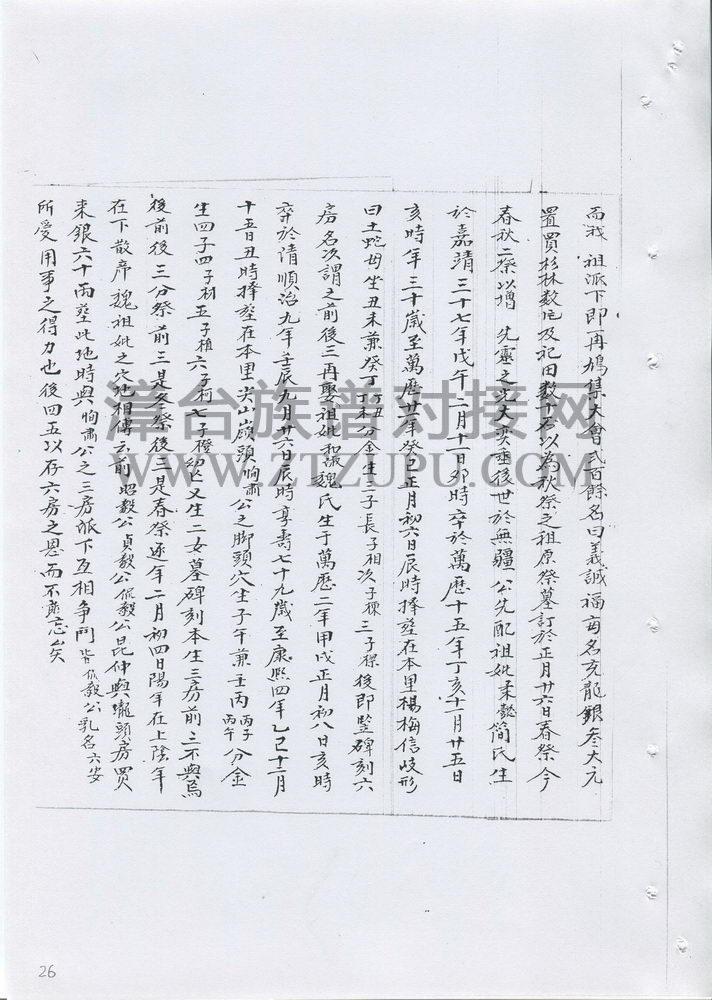 而我 祖派下即再鳩集大會弍百餘名曰義誠福每名充龍銀叁大元
置買杉林數庄及祀田數十石以為秋祭之祖原祭墓訂於正月廿六日春祭今
春秋二祭以增 先靈之光大 垂後世於無疆 公先配祖妣柔懿簡氏生
於嘉靖三十七年戊午二月十一日卯時卒於萬曆十五年丁亥十一月廿五日
亥時年三十歲至萬曆廿一年癸巳正月初六日辰時擇塟在本里楊梅信岐形
曰土蛇母坐丑未兼癸丁丁丑丁未分金生三子長子相次子棟三子樑後即豎碑刻六
房名次謂之前後三再娶祖妣和淑魏氏生于萬曆二年甲戌正月初八日亥時
卒於清順治九年壬辰九月廿六日辰時享壽七十九歲至康熙四年乙巳十二月
十五日丑時擇塟在本里尖山嶺頭恂肅公之脚頭穴坐子午兼壬丙丙子丙午分金
生四子四子桐五子植六子柯七子橙幼亡又生二女墓碑刻本生三房前三不與焉
後前後三分祭前三是冬祭後三是春祭逐年二月初四日陽年在上陰年
在下散席魏祖妣之穴地相傳云前昭毅公貞毅公依毅公昆仲與壠頭房買
来銀六十兩塟此地時與恂肅公之三房派下互相爭鬥皆依毅公乳名六安
所受用事之得力也後四五以存六房之恩而不忘矣
漳台族谱对接网
WWW.ZTZUPU.COM
26